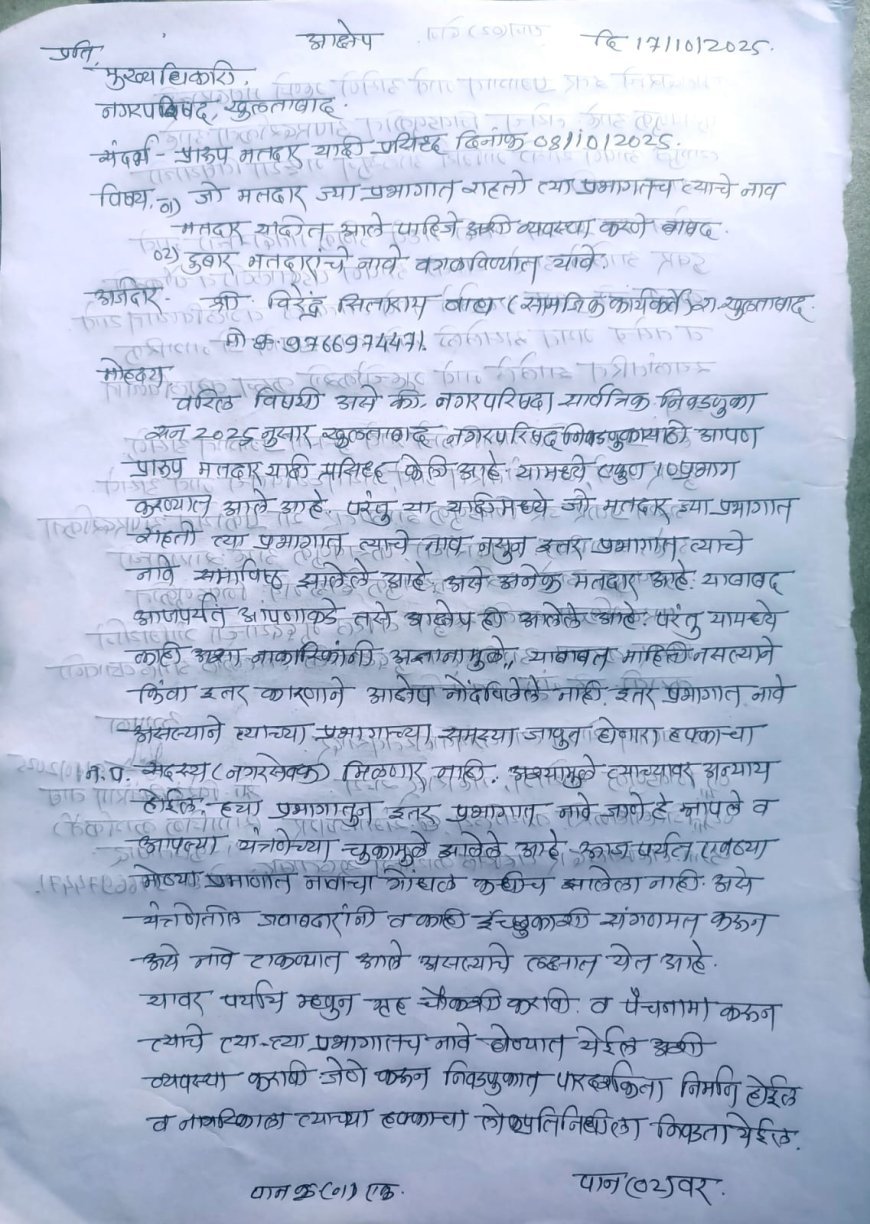 आक्षेप दि 17/10/2025.
प्रति,
मुख्यधिकारी,
नगरपरिषद, खुलताबाद.
संदर्भ - प्रारुप मतदार यादी प्रसिद्द दिनांक 08/10/2025.
विषय. ०१) जो मतदार ज्या प्रभागात राहतो त्या प्रभागातच त्याचे नाव
मतदार यादीत आले पाहिजे अशी व्यवस्था करणे बाबद.
०२) दुबार मतदारांचे नावे वगळविण्यात यावे.
अर्जदार. श्री. सिताराम (सामाजिक कार्यकर्ते) रा. खुलताबाद.
मो क्र. 9766974471.
मोहदय
वरिल विषयी असे की, नगरपरिषदा सार्वत्रिक निवडणुका
सन 2025 नुसार खुलताबाद नगरपरिषद निवडणुकासाठी आपण
प्रारुप मतदार यादी प्रसिध्द केली आहे. यामध्ये एकुण 10 प्रभाग
करण्यात आले आहे. परंतु या यादीमध्ये जो मतदार ज्या प्रभागात
राहतो त्या प्रभागात त्याचे नाव नसुन इतर प्रभागात त्याचे
नावे समाविष्ठ झालेले आहे. असे अनेक मतदार आहे. याबाबद
आजपर्यंत आपणाकडे तसे आक्षेप ही आलेले आहे. परंतु यामध्ये
काही अशा नाकारिकांनी अज्ञानामुळे, याबाबत माहिती नसल्याने
किंवा इतर कारणाने आक्षेप नोंदविलेले नाही. इतर प्रभागात नावे
असल्याने त्याच्या प्रभागाच्या समस्या जाणुन होणारा हक्काचा
न.प. सदस्य (नगरसेवक) मिळणार नाही. अश्यामुळे त्याच्यावर अन्याय
होईल. ह्या प्रभागातुन इतर प्रभागात नावे जाणे हे आपले व
आपल्या यंत्रणेच्या चुकामुळे झालेले आहे. आज पर्यंत एवढ्या
मोठ्या प्रमाणात नावाचा गोंधळ कधीच झालेला नाही. असे
यंत्रणेतील जबाबदारांनी व काही ईच्छुकाशी संगणमत करून
असे नावे टाकण्यात आले असल्याचे लक्षात येत आहे.
यावर पर्याय म्हणुन गृह चौकशी करावी. व पंचनामा करून
त्याचे त्या-त्या प्रभागातच नावे होण्यात येईल अशी
व्यवस्था करावी जेणे करून निवडणुकात पारदर्शकता निर्माण होईल
व नागरिकाला त्याच्या हक्काचा लोकप्रतिनिधीला निवडता येईल.
पान क्र (०१) एक. पान (०२) वर.